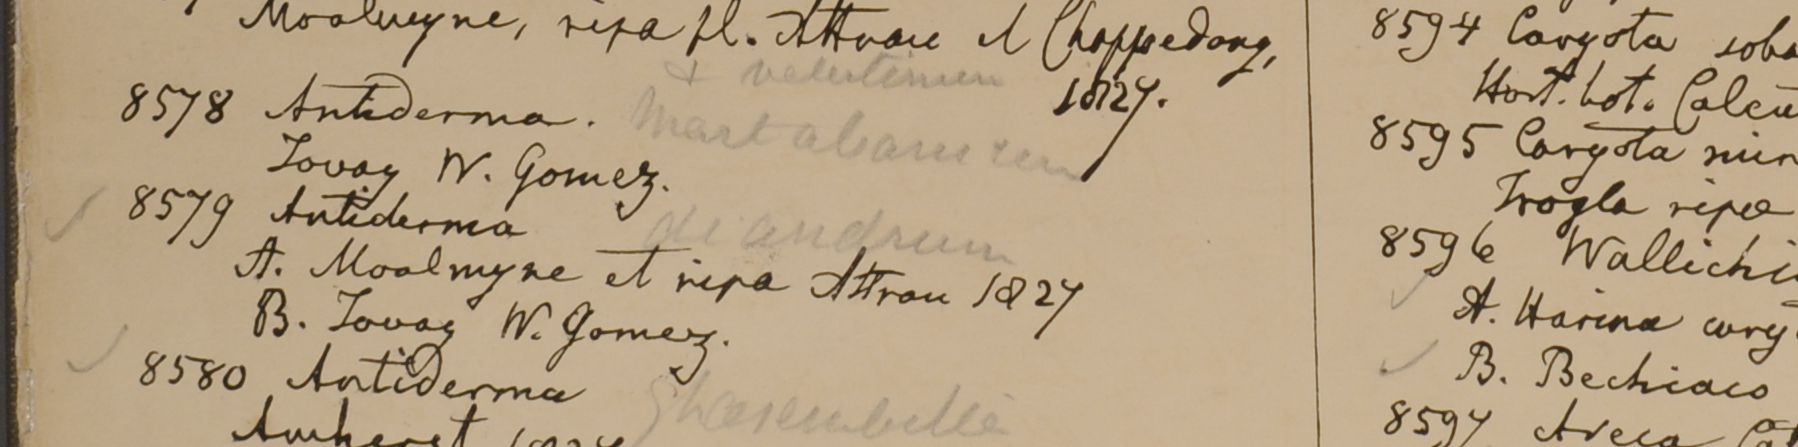 Moalmyne, ripa fl. Attran et Chappedong,
& velutinum
1827.
8578 Antiderma. Martabanicum
Tovay W. Gomez.
8579 Antiderma diandrum
A. Moalmyne et ripa Attran 1827
B. Tovay W. Gomez.
8580 Antiderma Ghaesembilla
Amherst 1827
8594 Caryota sobo
Hort. bot. Calcu
8595 Caryota
Trogla ripa
8596 Wallichi
A. Harina cary
B. Bechiaco
8597 Areca